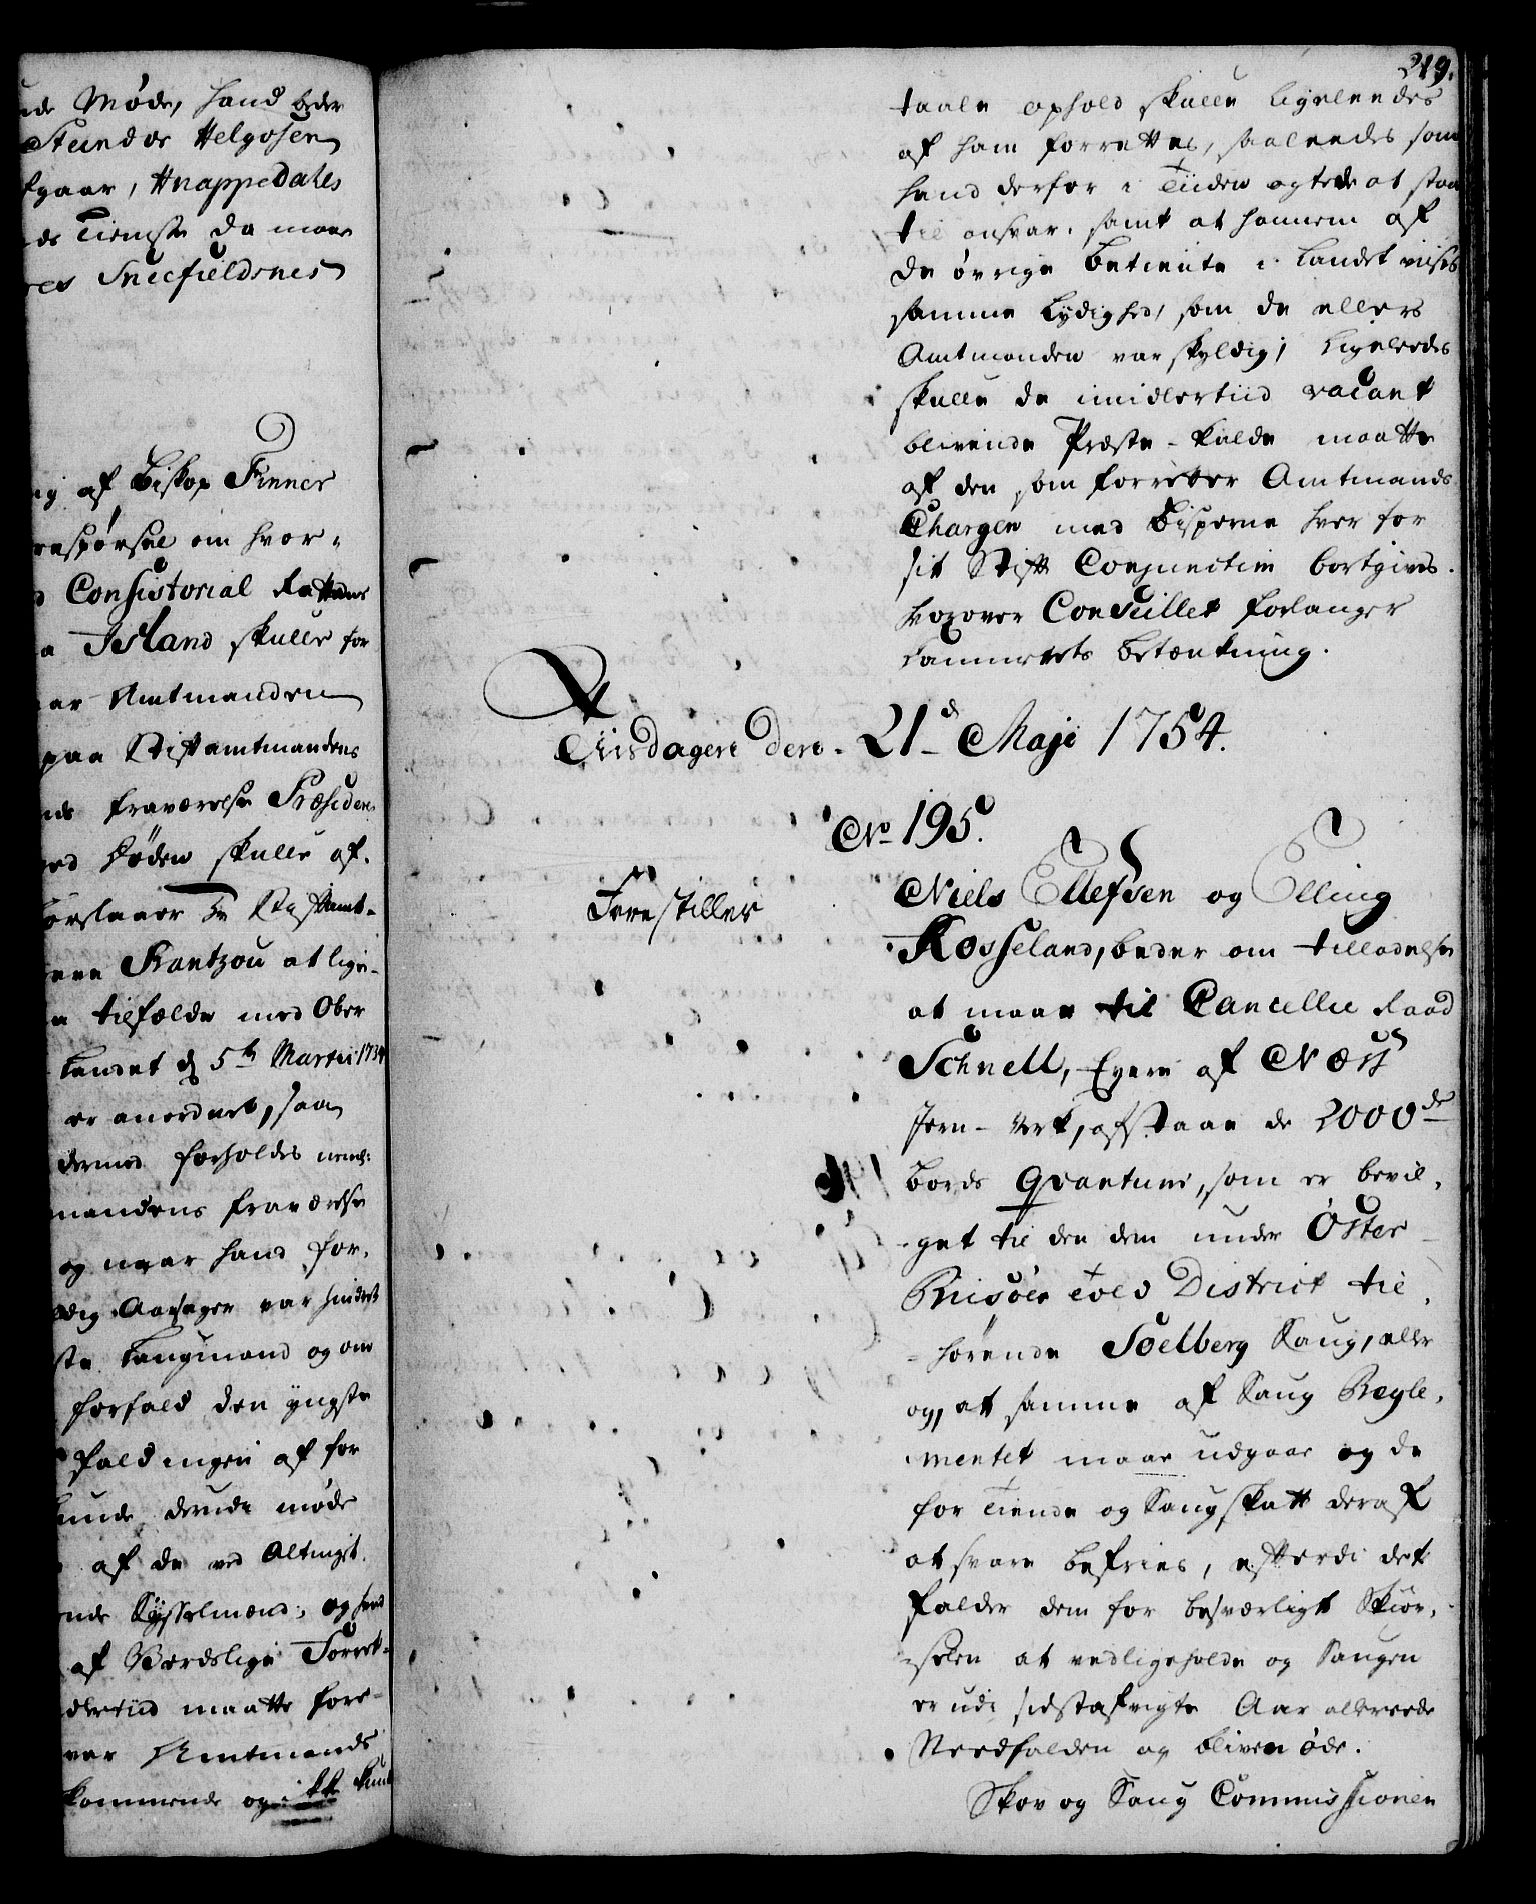 de Møde, hand beder
Steindor Helgesen
gaar, Hnappedahls
ds Tieniste da maae
Sneefieldsnes
af Biskop Finner
respørsel om hvor-
Consistorial Rettens
a Island skulle for
ar Amtmanden
paa Stiftamtmandens
nds fraværelse Præsidere
ved Døden skulle af-
orslaaer Hr Stiftamt-
Rantzou at lige-
tilfælde med Ober
Landet d 5te Martii 1734
er anordnet, saa
dermed forholdes neml:
mandens fraværelse
og naar hand for-
dig Aarsager var hindret
ste Laugmand og om
forfald den yngste
fald ingen af for
kunde derude møde
af de ved Altinget
nde Sysselmænd; og hvad
af Verdslige Forret-
dlertiid maatte fore-
var Amtmands
kommende og
219.
taale ophold skulle ligeleedes
af ham forrettes, saaleedes som
hand derfor i Tiiden agtede at staa
til ansvar, samt at hannem af
de øvrige betiente i Landet viises
samme Lydighed, som de ellers
Amtmanden var skyldig; Ligeleedes
skulle de imidlertiid vacant
blivende Præste-Kalde maatte
af den som forretter Amtmands
Chargen med Bisperne hver for
sit Stift Conjunctim bortgives.
hvorover Conseillet forlanger
Cammerets betænkning.
Tiisdagen den 21de Maji 1754.
No 195.
Forestiller
Niels Ellefsen og Elling
Rosseland, beder om tilladelse
at maae til Cancellie Raad
Schnell, Eyere af Næss
Jern-Verk, afstaae de 2000de
bords Qvantum, som er bevil-
get til den dem under Øster
Riisøer Told District til-
hørende Soelberg Saug, eller
og, at samme af Saug Regle-
mentet maae udgaae og de
for Tiende og Saugskatt deraf
at svare befries, efterdi det
falder dem for besværligt Skiør-
selen at vedligeholde og Saugen
er udi sidstafvigte Aar allereede
Nedfalden og bliven øde.
Skov og Saug Commissionen